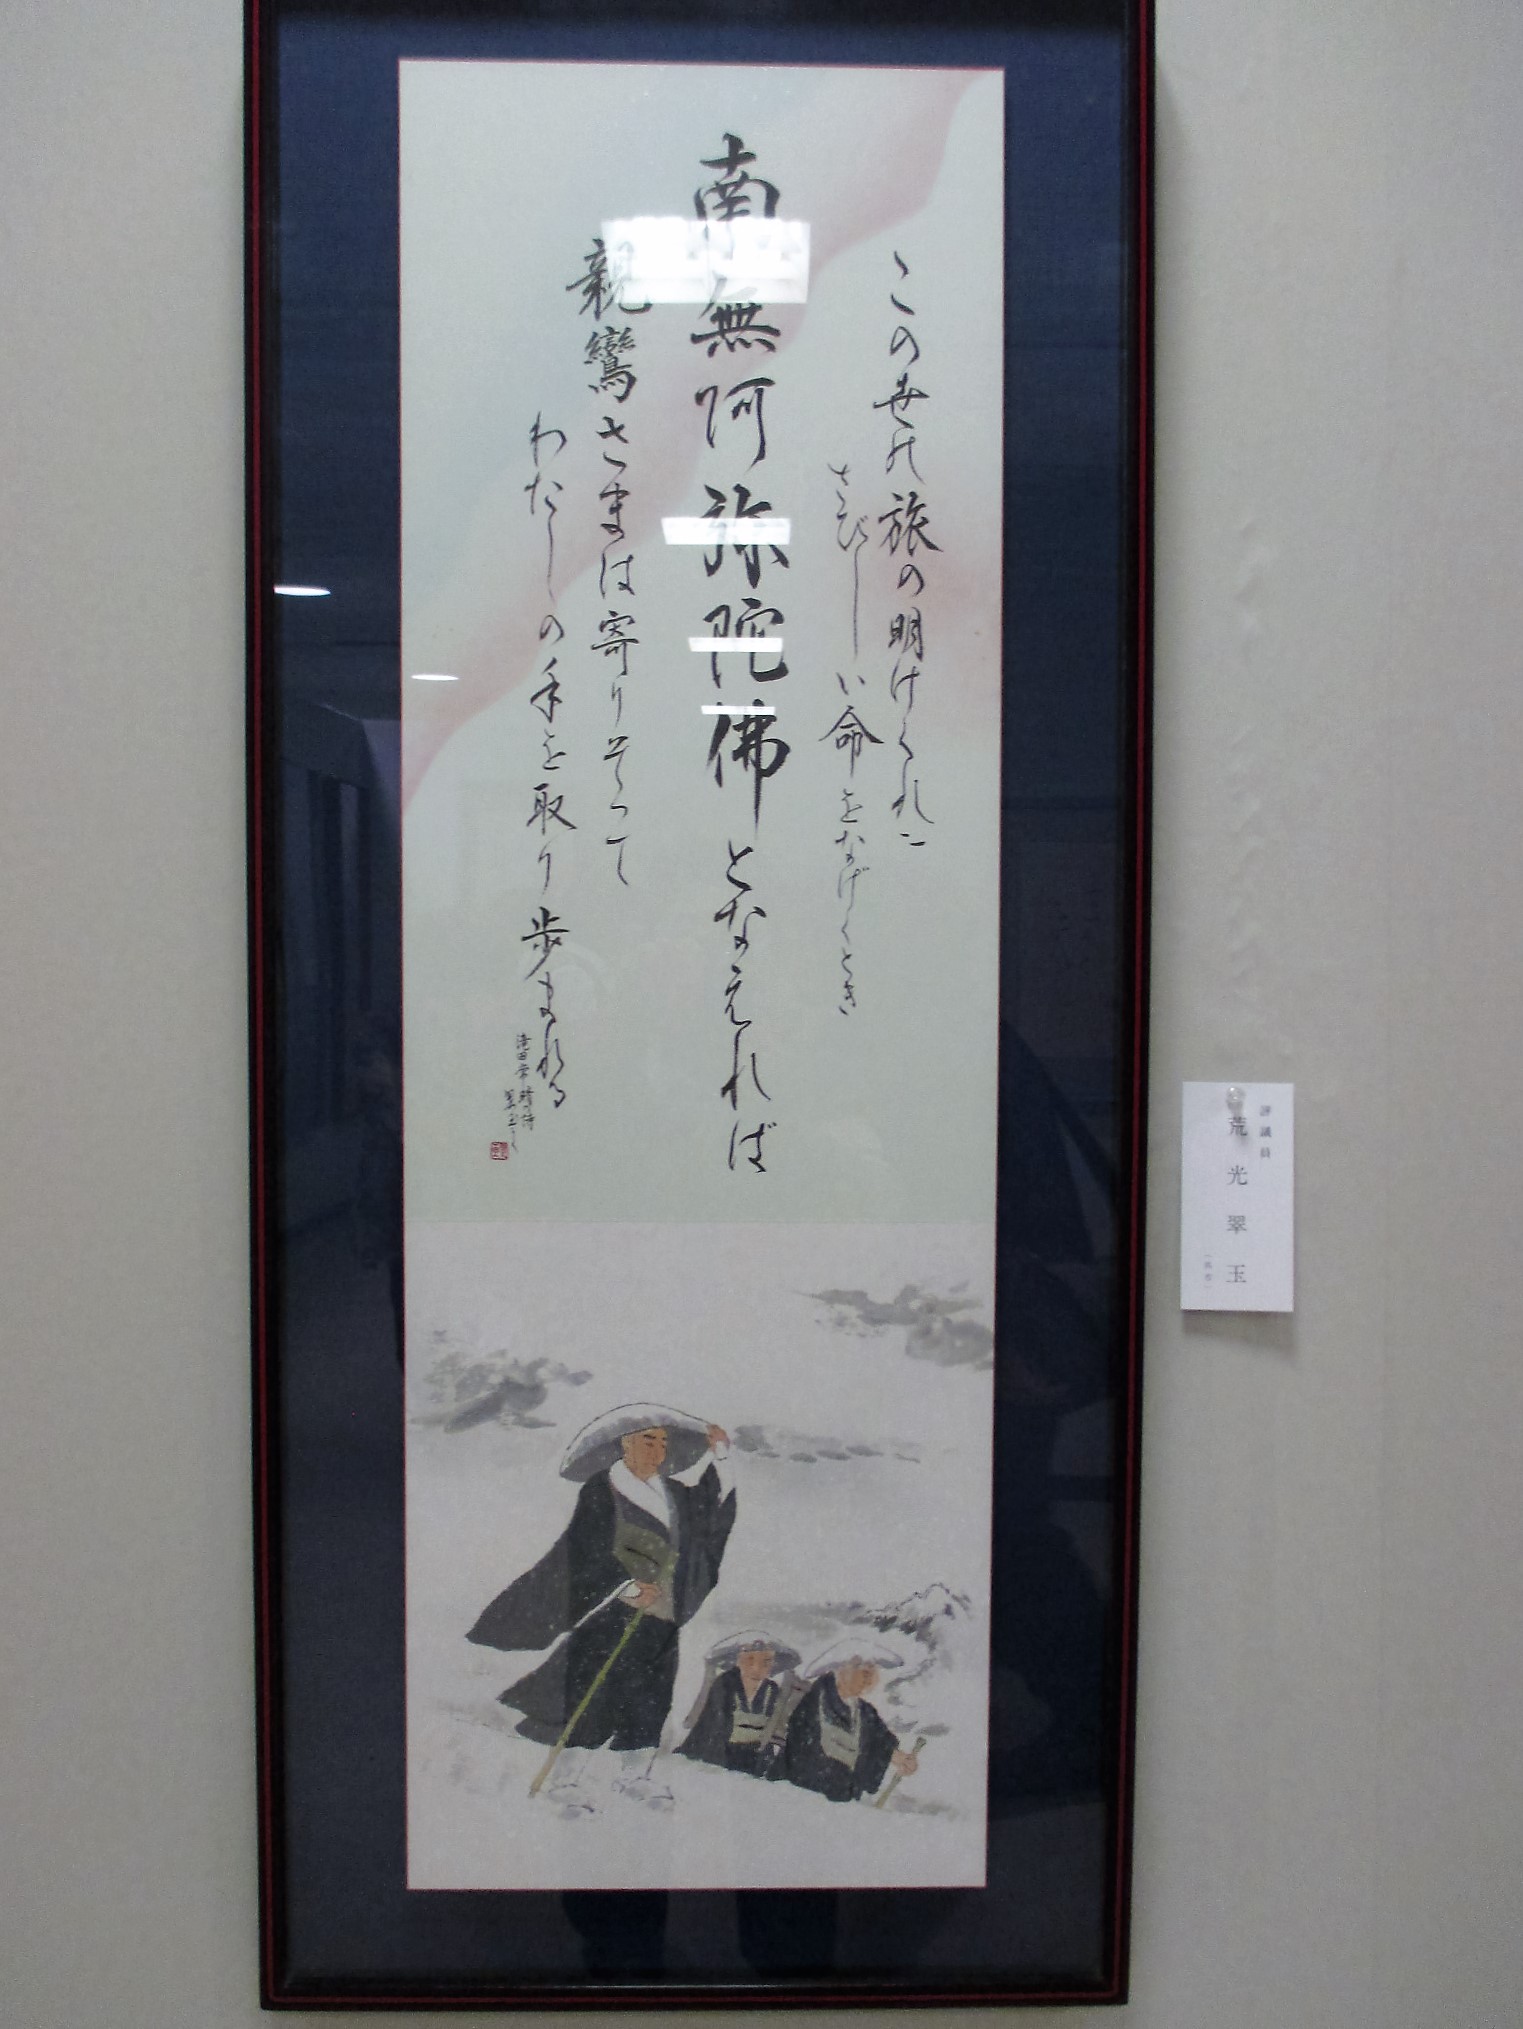 この世の旅の明けくれに
さびしい命をなげくとき
南無阿弥陀佛となえれば
親鸞さまは寄りそって
わたしの手を取り歩まれる
滝田常晴詩
翠玉
評議員
荒光翠玉